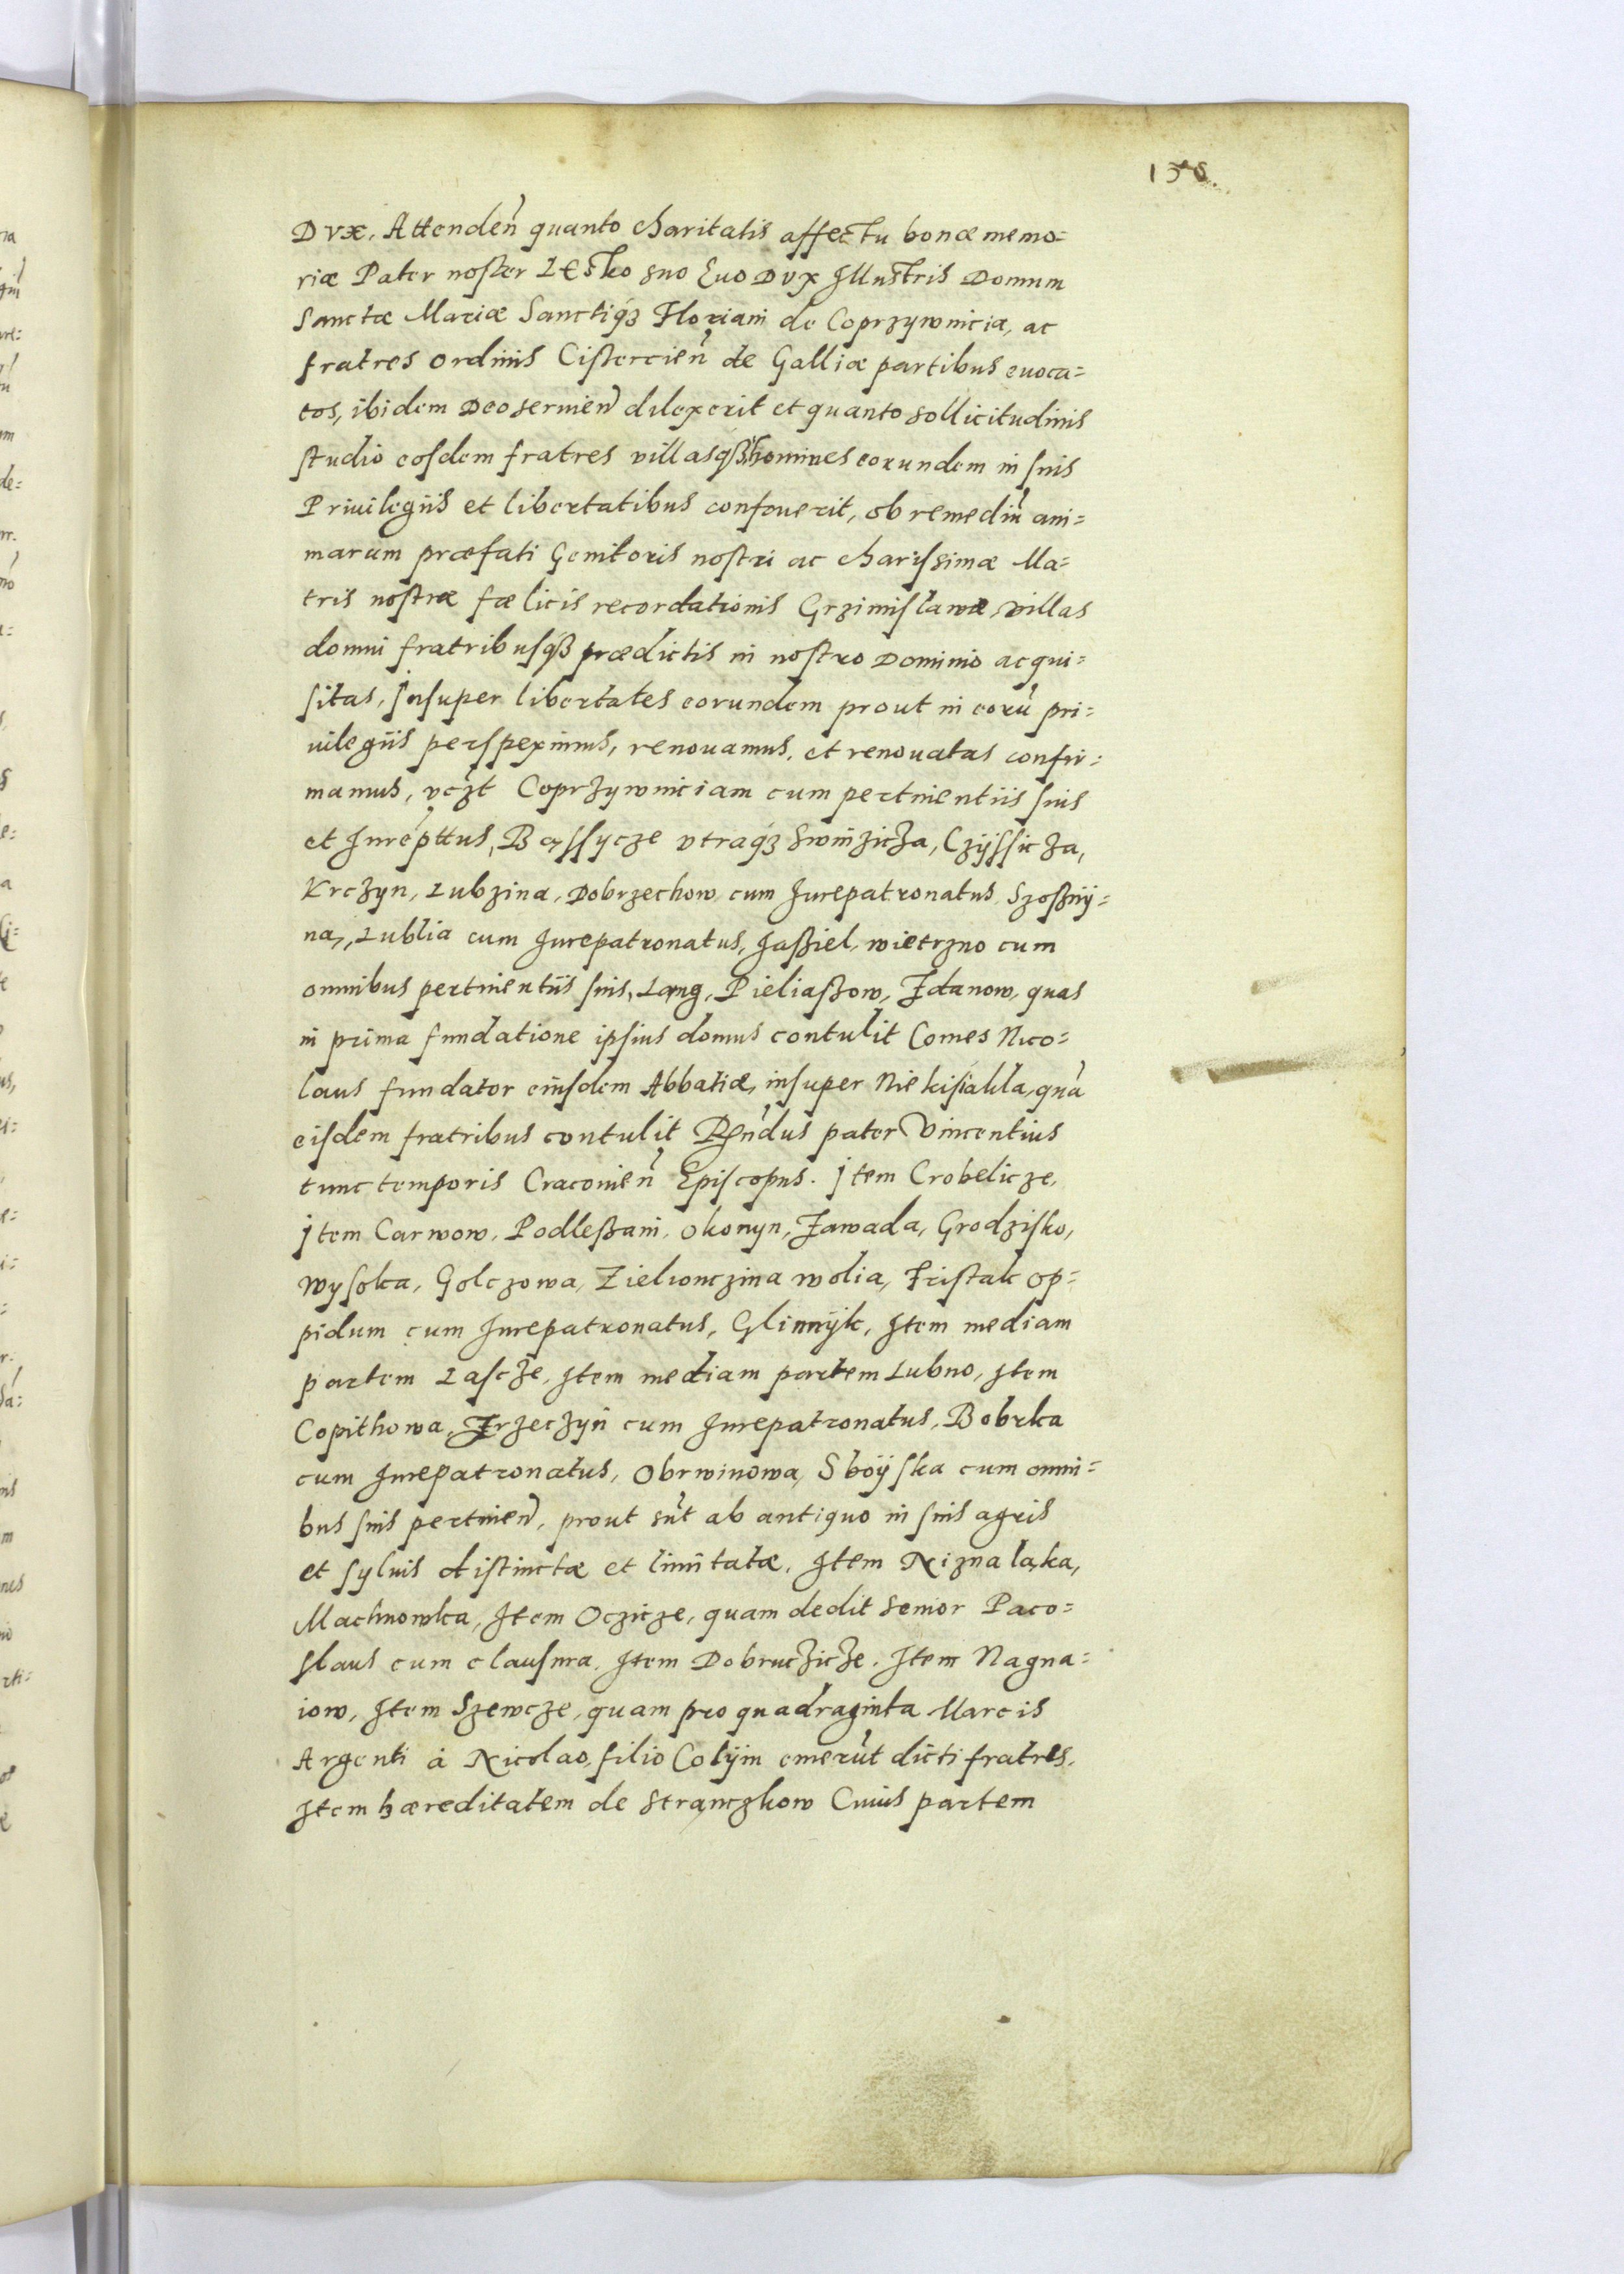 138.
Dvx, Attendeñ quanto charitatis affectu bonæ memo=
riæ Pater noster Lestko suo Euo Dvx Illustris Domum
Sanctæ Mariæ Sanctiqꝫ Floriani de Coprzywnicia, ac
fratres Ordinis Cistercień de Galliæ partibus euoca=
tos, ibidem Deo seruień dilexerit et quanto sollicitudinis
studio eosdem fratres villasqꝫ homines eorundem in suis
Priuilegiis et libertatibus confouerit, ob remediū ani=
marum præfati Genitoris nostri ac charissimæ Ma=
tris nostræ fælicis recordationis Grzimislawæ, villas
domui fratribusqꝫ prædictis in nostro Dominio acqui=
sitas, Insuper libertates eorundem prout in eorū pri=
uilegiis perspeximus, renouamus, et renouatas confir=
mamus, vczt Coprzywniciam cum pertinentiis suis
et Jurepttus, Bossycze vtraqꝫ Swinziczа, Czÿssicza,
Krczyn, Lubzina, Dobrzechow cum Jurepatronatus, Szoßnÿ=
na, Lublia cum Jurepatronatus, Jaßiel, wietrzno cum
omnibus pertinentiis suis, Lang, Pieliaßzow, Zdanow, quas
in prima fundatione ipsius domus contulit Comes Nico=
laus fundator eiusdem Abbatiæ, insuper Niekisialka, quā
eisdem fratribus contulit Rṇdus pater Vincentius
tunc temporis Cracouień Episcopus. Item Crobelicze,
Item Carwow, Podleßani, Okonyn, Zawada, Grodzisko,
Wysoka, Golczowa, Zielionczina wolia, Fristak op=
pidum cum Jurepatronatus, Glinnÿk, Item mediam
partem Lascze, Item mediam partem Lubno, Item
Copithowa, Zrzeczyn cum Jurepatronatus, Bobrka
cum Jurepatronatus, Obrwinowa, Sboÿska cum omni=
bus suis pertineń, prout sūt ab antiquo in suis agris
et syluis distinctæ et limitatæ. Item Nizna laka,
Machnowka, Item Oczicze, quam dedit Senior Paco=
slaus cum clausura. Item Dobruczicze. Item Nagna=
iow, Item Szewcze, quam pro quadraginta Marcis
Argenti à Nicolao, filio Colÿin emerūt dicti fratres.
Item hæreditatem de Stranczkow Cuius partem